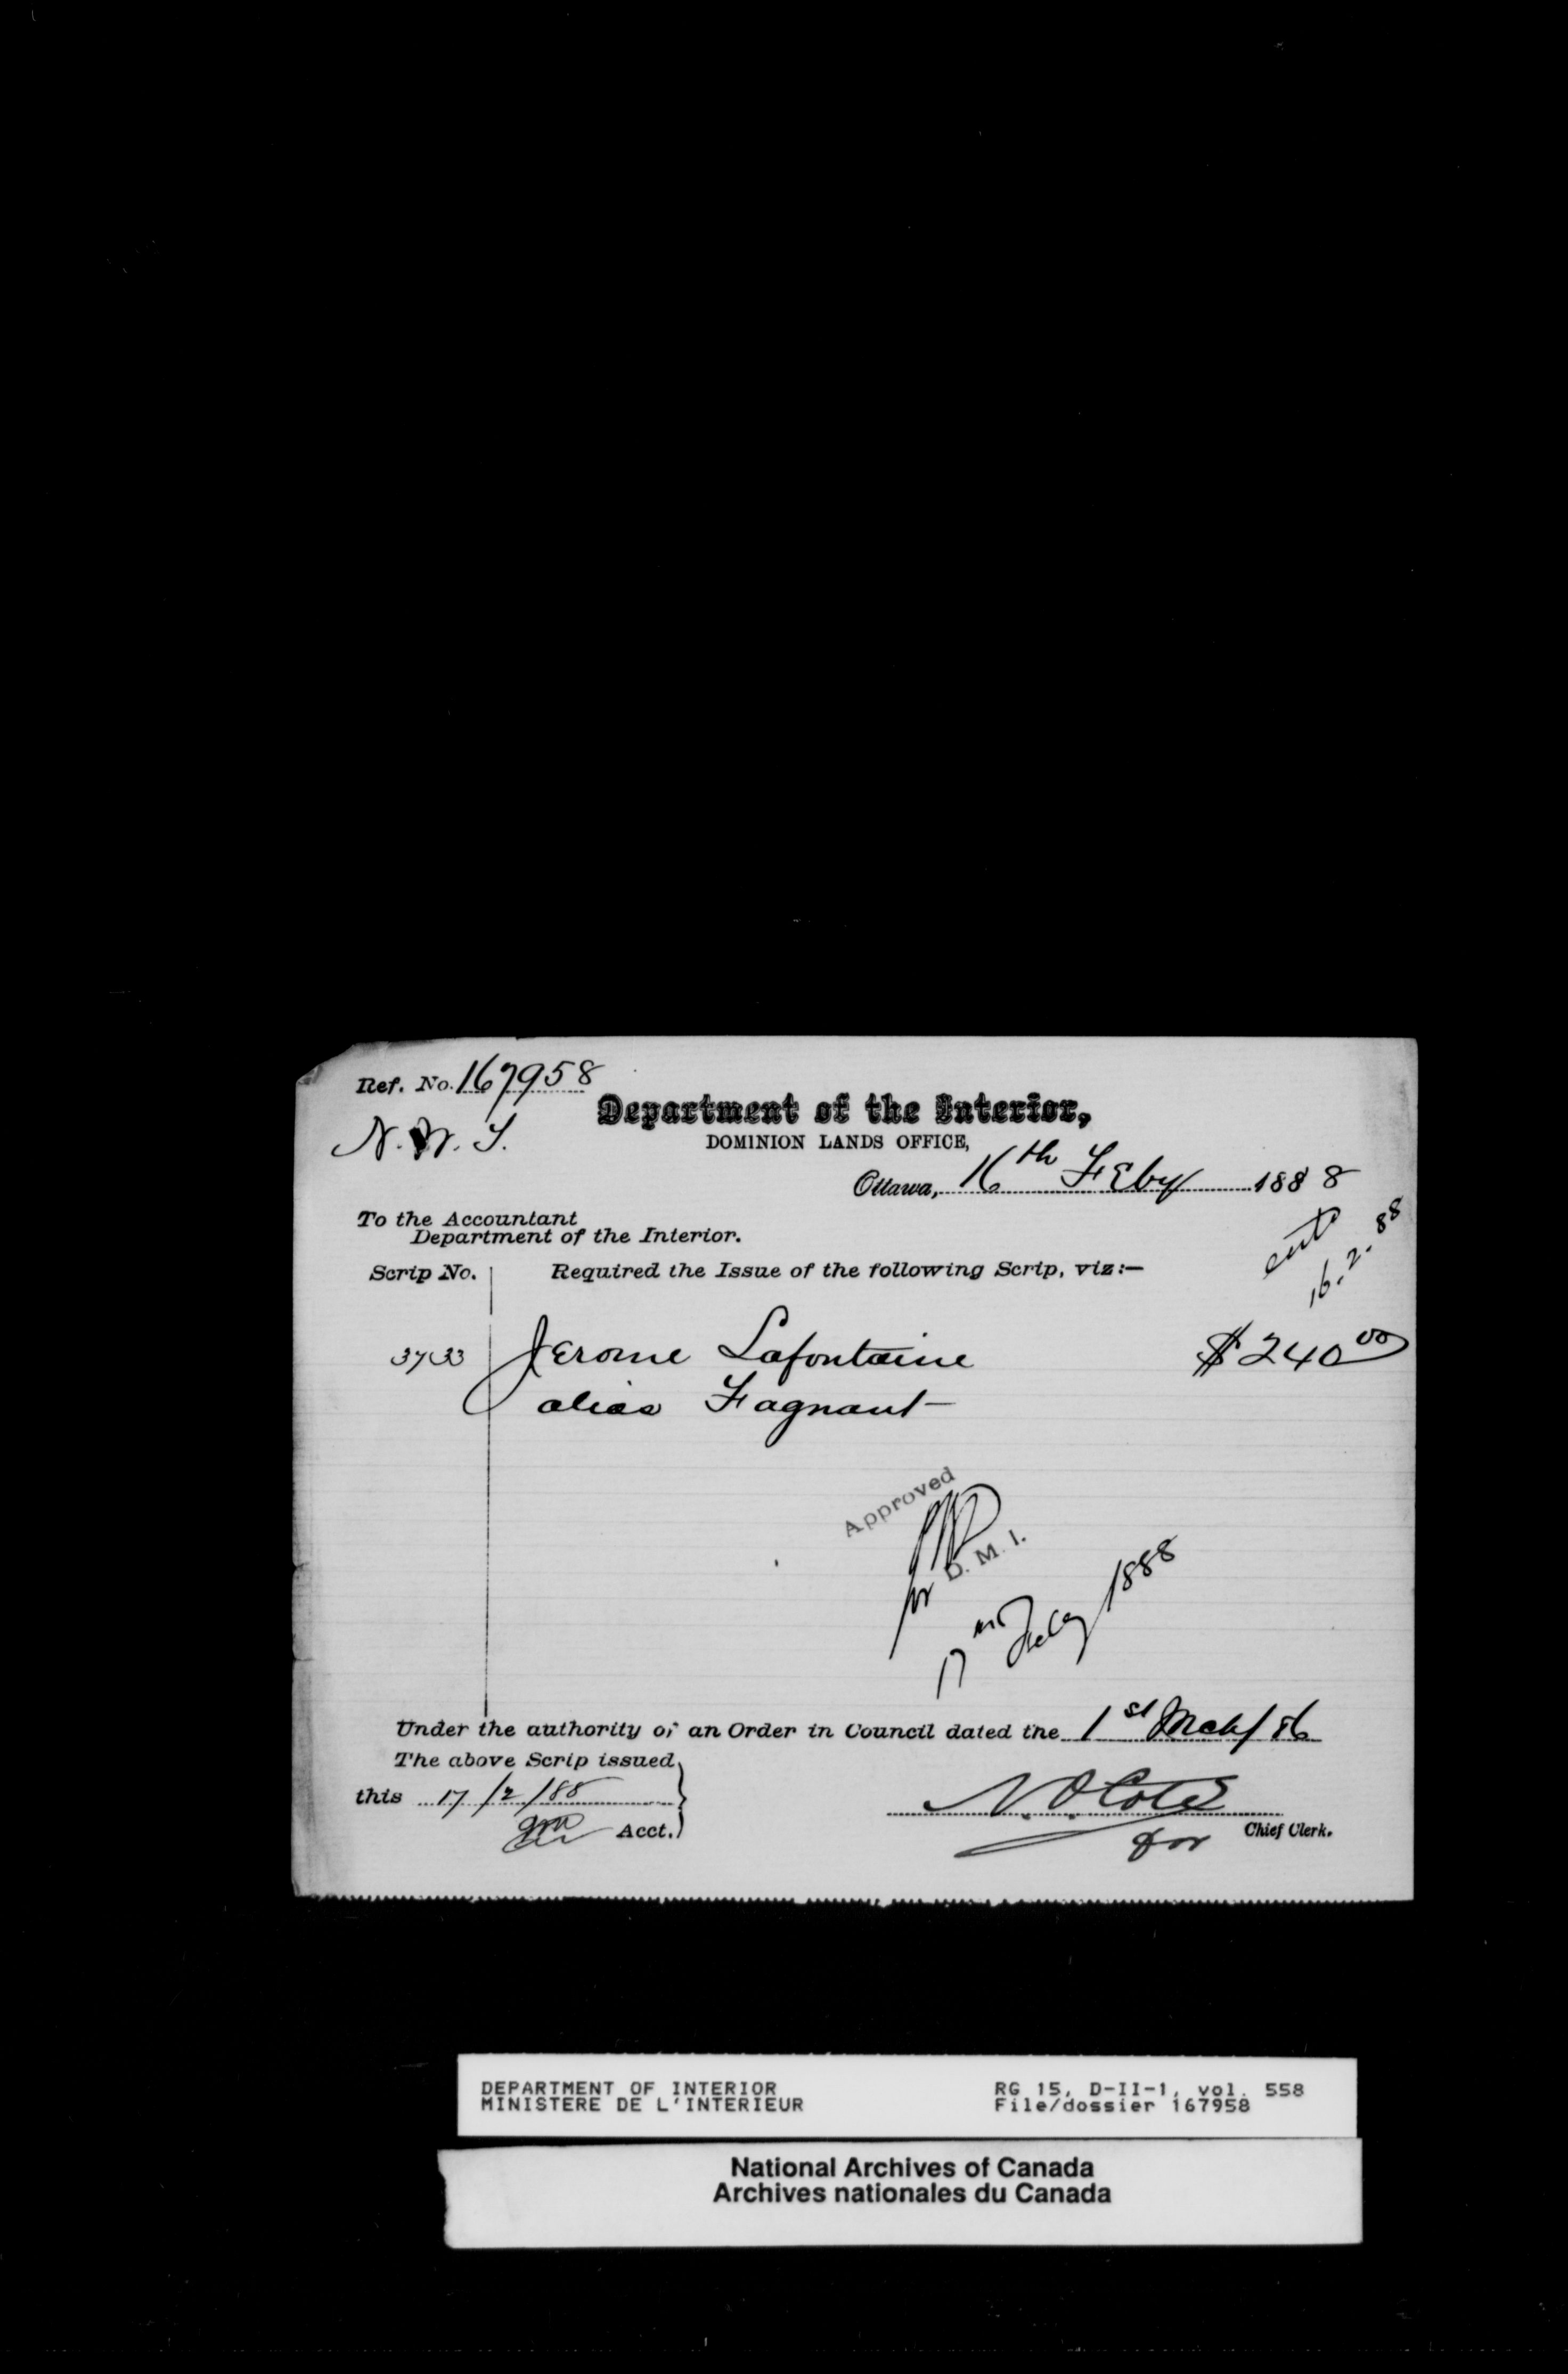 Ref. No. 167958
N. W. T.
Department of the Interior,
DOMINION LANDS OFFICE,
Ottawa, 16th Feby 1888
To the Accountant
Department of the Interior.
16.2.88
Scrip No. Required the Issue of the following Scrip, viz:—
3733 Jerome Lafontaine $240 00
alias Fagnant
Approved
for D. M. I.
17th Feby 1888
Under the authority of an Order in Council dated the 1st Mch/86
The above Scrip issued
this 17/2/88
Acct.
N O Coté
for Chief Clerk.
DEPARTMENT OF INTERIOR
MINISTERE DE L'INTERIEUR
RG 15, D-II-1, vol. 558
File/dossier 167958
National Archives of Canada
Archives nationales du Canada